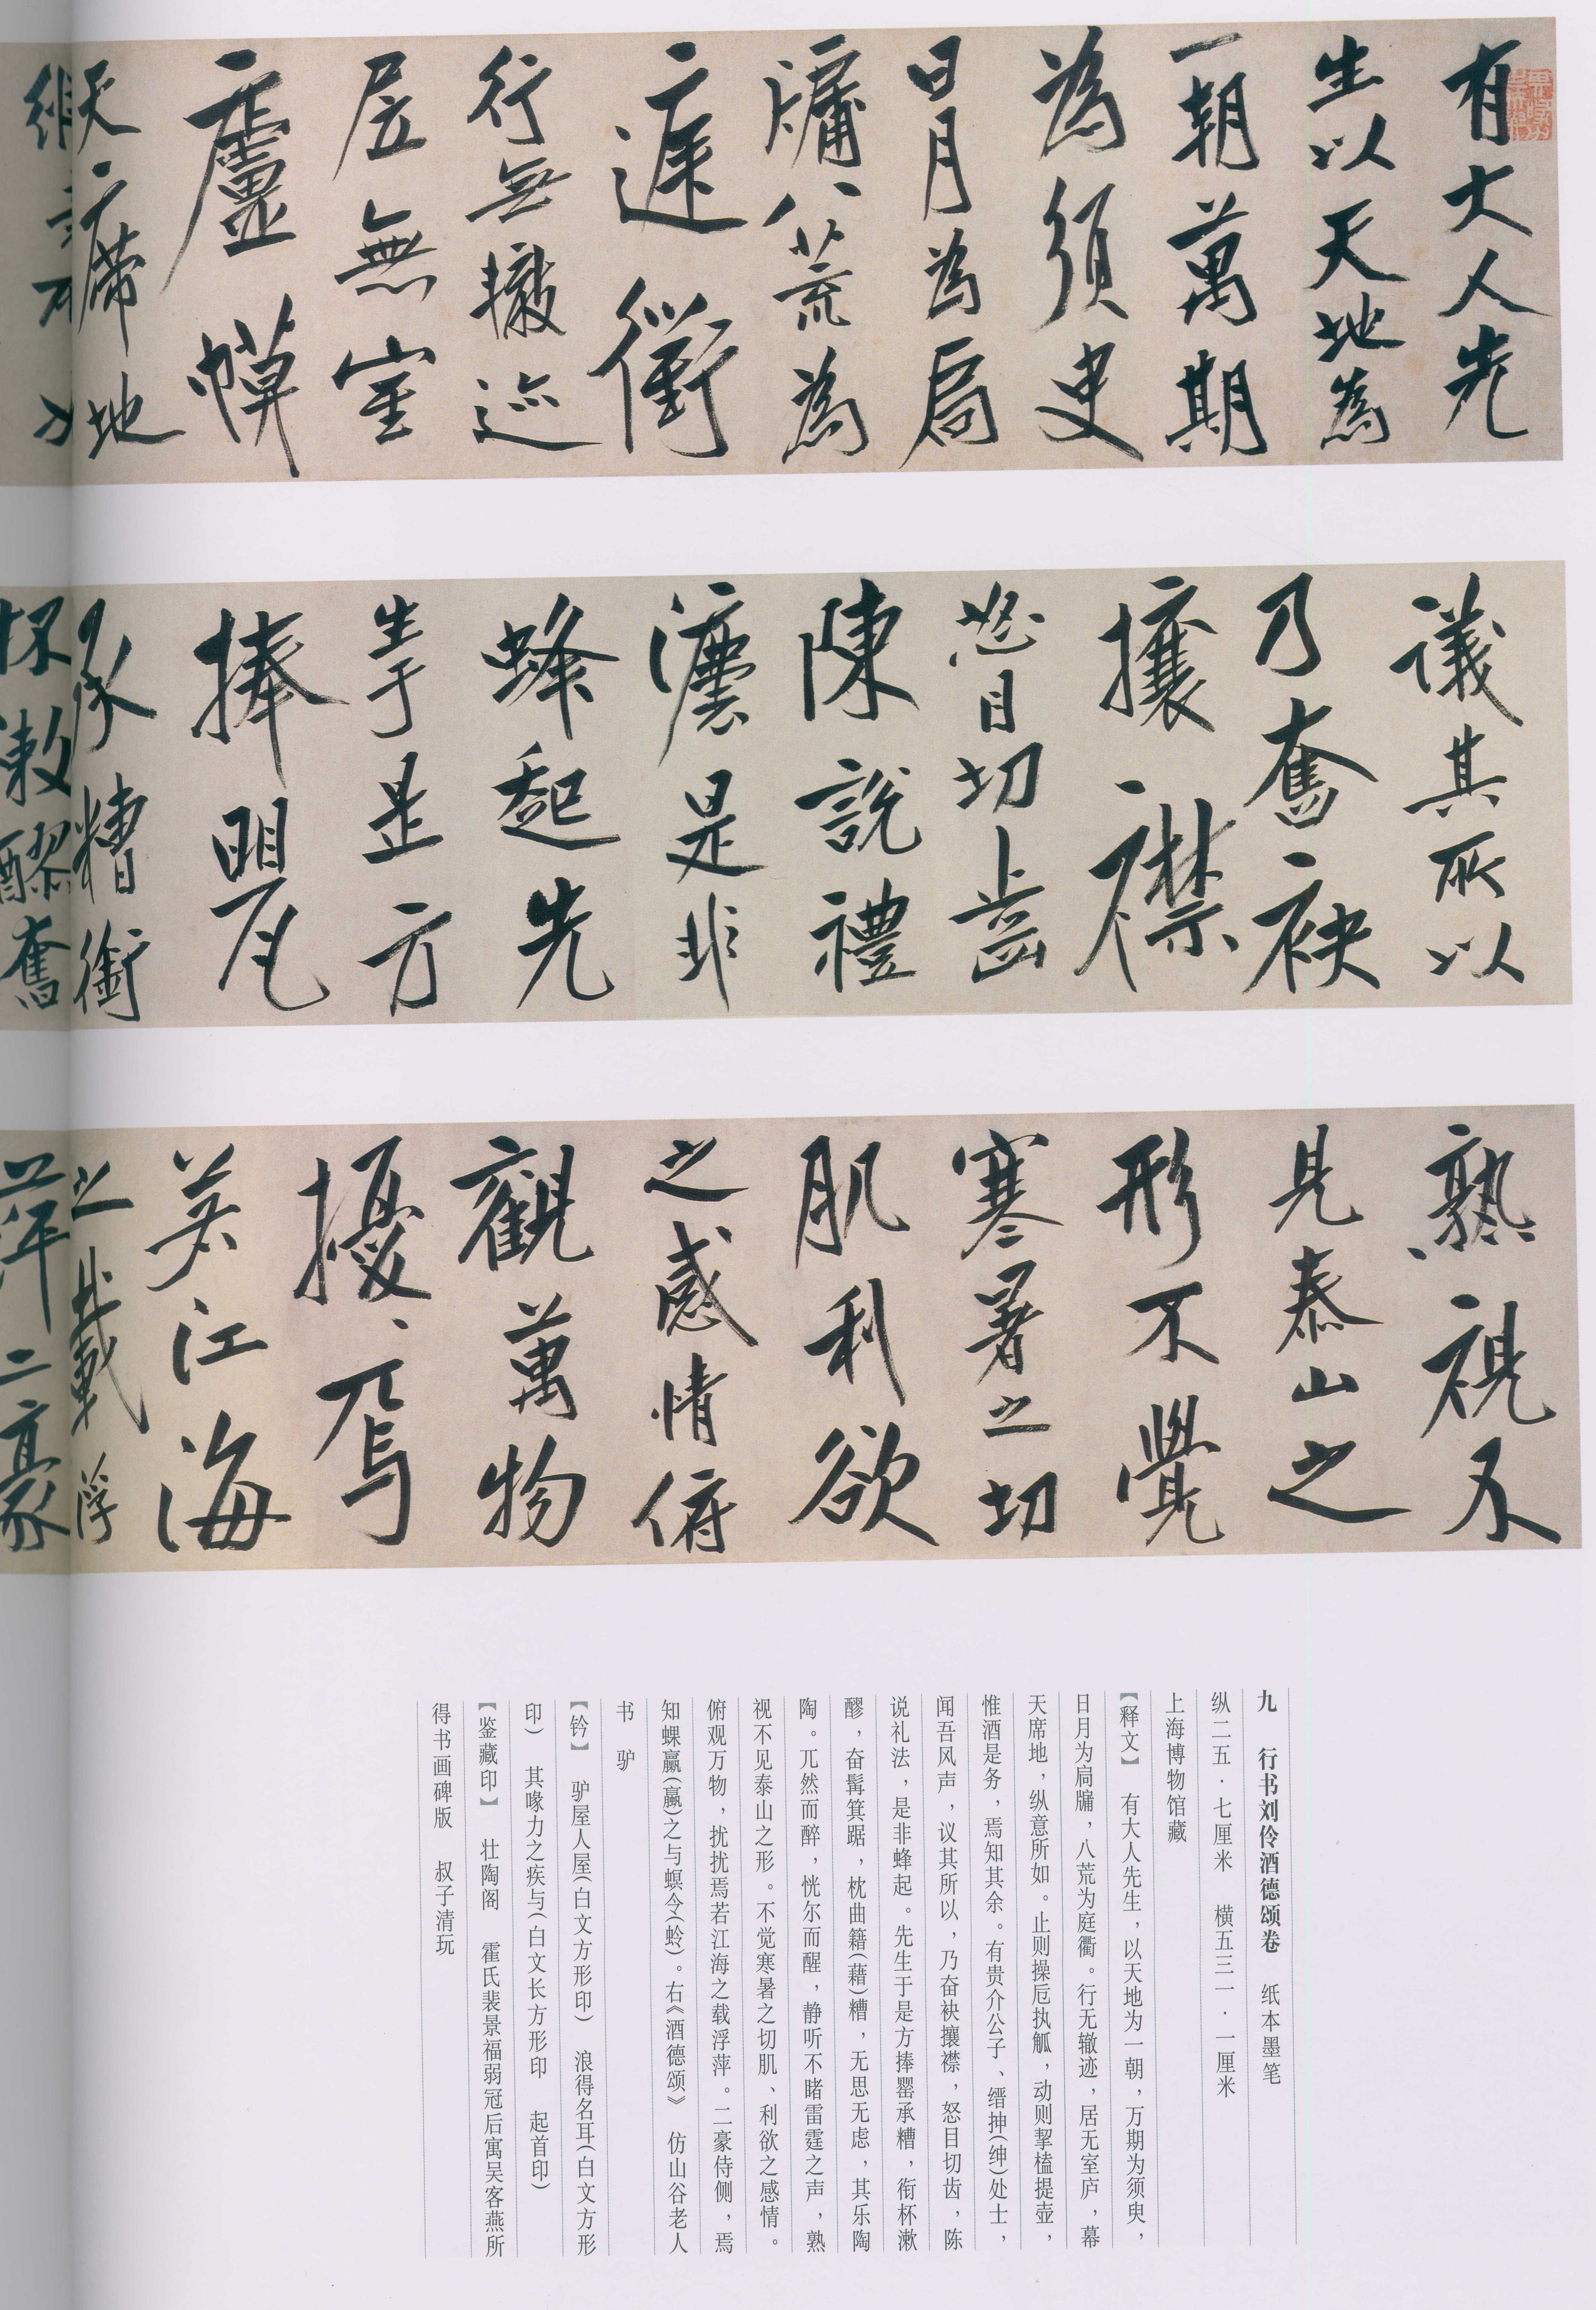 有大人先
生以天地為
一朝萬期
為須臾
日月為扃
牖八荒為
庭衢
行無轍迹
居無室
廬幙
天席地
議其所以
乃奮袂
攘襟
怒目切齒
陳說禮
灋是非
蜂起先
生于是方
捧罌
承糟銜
杯漱醪奮
熟視不
見泰山之
形不覺
寒暑之切
肌利欲
之感情俯
觀萬物
擾、焉
若江海
之載浮
萍二豪
九　行书刘伶酒德颂卷　纸本墨笔
纵二五·七厘米　横五三一·一厘米
上海博物馆藏
【释文】　有大人先生，以天地为一朝，万期为须臾，
日月为扃牖，八荒为庭衢。行无辙迹，居无室庐，幕
天席地，纵意所如。止则操卮执觚，动则挈榼提壶，
惟酒是务，焉知其余。有贵介公子、缙抻(绅)处士，
闻吾风声，议其所以，乃奋袂攘襟，怒目切齿，陈
说礼法，是非蜂起。先生于是方捧罂承糟，衔杯漱
醪，奋髯箕踞，枕曲籍(藉)糟，无思无虑，其乐陶
陶。兀然而醉，恍尔而醒，静听不睹雷霆之声，熟
视不见泰山之形。不觉寒暑之切肌、利欲之感情。
俯观万物，扰扰焉若江海之载浮萍。二豪侍侧，焉
知蜾蠃(蠃)之与螟令(蛉)。右《酒德颂》　仿山谷老人
书　驴
【钤】　驴屋人屋(白文方形印)　浪得名耳(白文方形
印)　其喙力之疾与(白文长方形印　起首印)
【鉴藏印】　壮陶阁　霍氏裴景福弱冠后寓吴客燕所
得书画碑版　叔子清玩